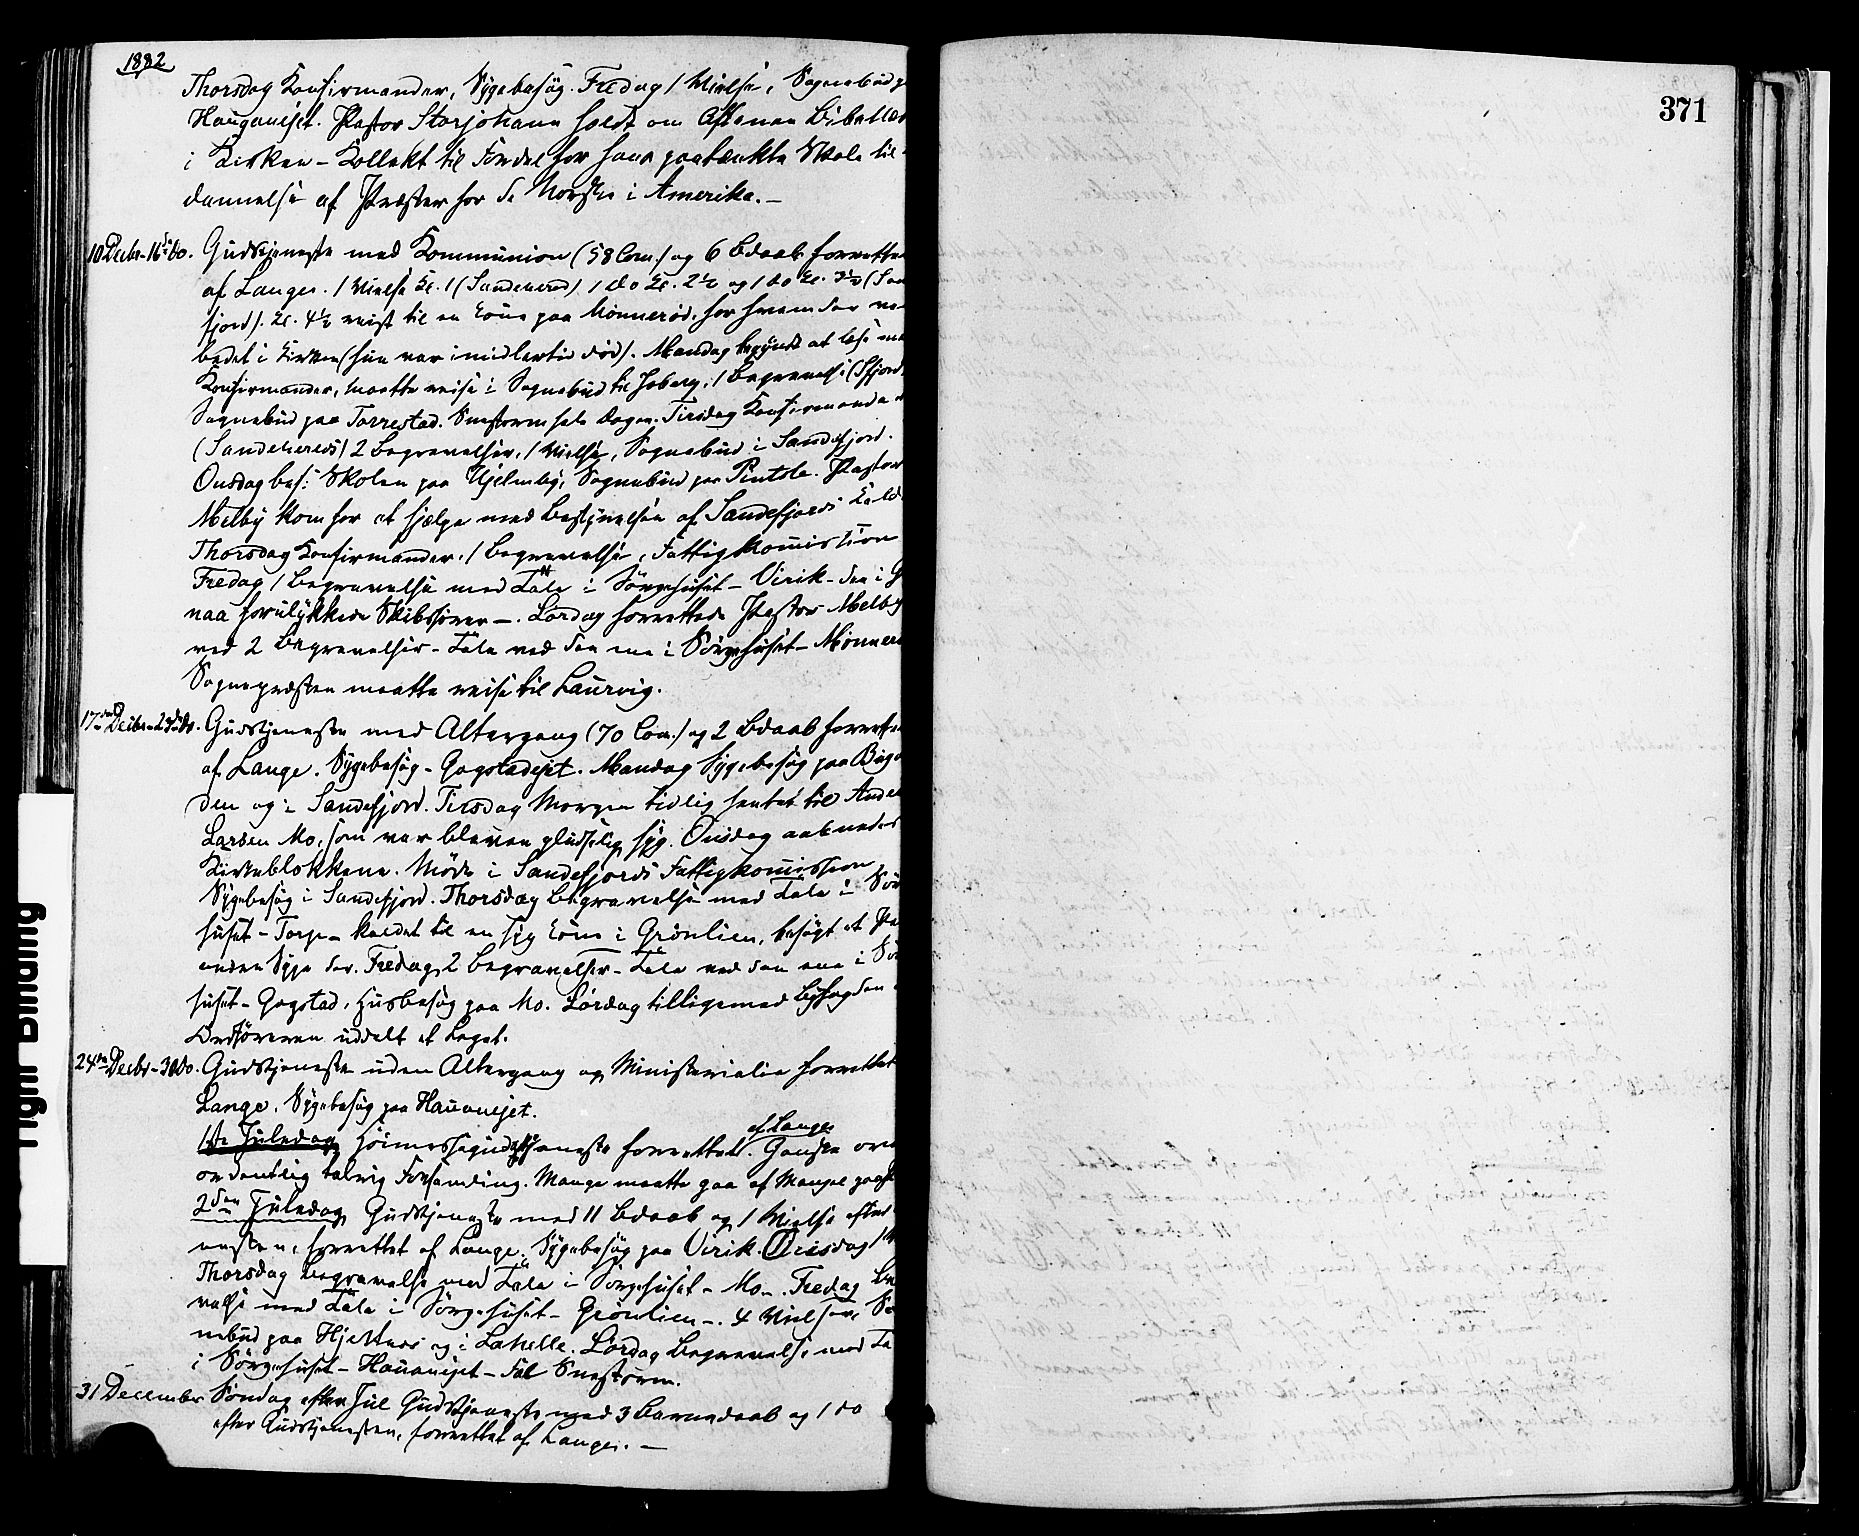 1882
371
Thorsdag Konfirmander, Sygebesøg. Fredag 1 Vielse, Sognebud p
Hauganejet. Pastor Storjohann holdt om Aftenen Bibellæs
i Kirken – Kollekt til Fordel for hans paatænkte Skole til
dannelse af Præster for de Norske i Amerika. –
10 Decbr – 16de do. Gudstjeneste med Kommunion (58 Com.) og 6 Bdaab forrettet
af Lange. 1 Vielse Kl. 1 (Sandeherred) 1 do Kl. 2½ og 1 do Kl. 3½ (San
fjord). Kl. 4½ reist til en Kone paa Mønnerød, for hvem der va
bedet i Kirken (hun var imidlertid død). Mandag begyndt at læse med
Konfirmander, maatte reise i Sognebud til Joberg, 1 Begravelse (Sfjord)
Sognebud paa Torrestad. Snestorm hele Dagen. Tirsdag Konfirmander
(Sandeherred) 2 Begravelser, 1 Vielse, Sognebud i Sandefjord.
Onsdag bes: Skolen paa Hjelmby, Sognebud paa Pintsle. Pastor
Melby kom for at hjælpe med Bestyrelsen af Sandefjords Kald
Thorsdag Konfirmander, 1 Begravelse, Fattigkommission
Fredag 1 Begravelse med Tale i Sørgehuset – Virik – den i G
naa forulykkede Skibsfører –. Lørdag forrettede Pastor Melby
ved 2 Begravelser – Tale ved den ene i Sørgehuset – Mønnerø
Sognepræsten maatte reise til Laurvig.
17de Decbr – 23de do. Gudstjeneste med Altergang (70 Com.) og 2 Bdaab forrettet
af Lange. Sygebesøg – Gogstadejet. Mandag Sygebesøg paa Buge
den og i Sandefjord. Tirsdag Morgen tidlig hentet til Ander
Larsen Mo, som var bleven pludselig syg. Onsdag aabnedes
Kirkeblokkene. Møde i Sandefjords Fattigkommission,
Sygebesøg i Sandefjord. Thorsdag Begravelse med Tale i Sør
huset – Torp – kaldet til en syg Kone i Grønlien, besøgt et Pa
anden Syge der. Fredag 2 Begravelser – Tale ved den ene i Sør
huset – Gogstad, Husbesøg paa Mo. Lørdag tilligemed Byfogden
Ordføreren uddelt et Legat.
24de Decbr – 30 do. Gudstjeneste uden Altergang og Ministerialia forrettet
Lange. Sygebesøg paa Hauanejet.
1ste Juledag Høimessegudstjeneste forrettet af Lange. Ganske over
ordentlig talrig Forsamling. Mange maatte gaa af Mangel paa
2den Juledag Gudstjeneste med 11 Bdaab og 1 Vielse efter
nesten, forrettet af Lange. Sygebesøg paa Virik. Onsdag 1
Thorsdag Begravelse med Tale i Sørgehuset – Mo –. Fredag Be
velse med Tale i Sørgehuset – Grønlien –. 4 Vielser, So
nebud paa Hjertnes og i Lahelle. Lørdag Begravelse med Ta
i Sørgehuset – Hauanejet – Fæl Snestorm.
31 December Søndag efter Jul Gudstjeneste med 3 Barnedaab og 1 do
efter Gudstjenesten, forrettet af Lange. –
Tight Binding